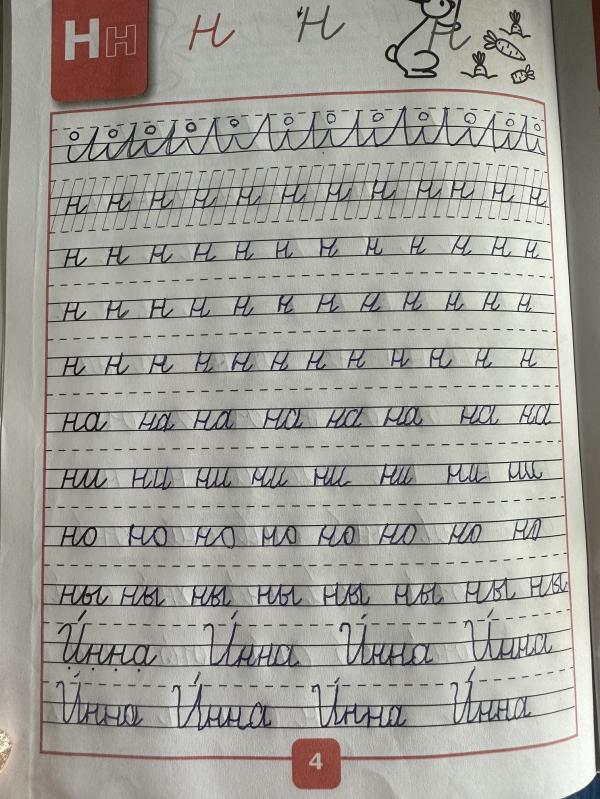 Н н н н н
н н н н н н н н н н н н
н н н н н н н н н н н н
н н н н н н н н н н н н
н н н н н н н н н н н н
на на на на на на на на
ни ни ни ни ни ни ни ни
но но но но но но но но
ны ны ны ны ны ны ны ны
И́нна И́нна И́нна И́нна
И́нна И́нна И́нна И́нна
4